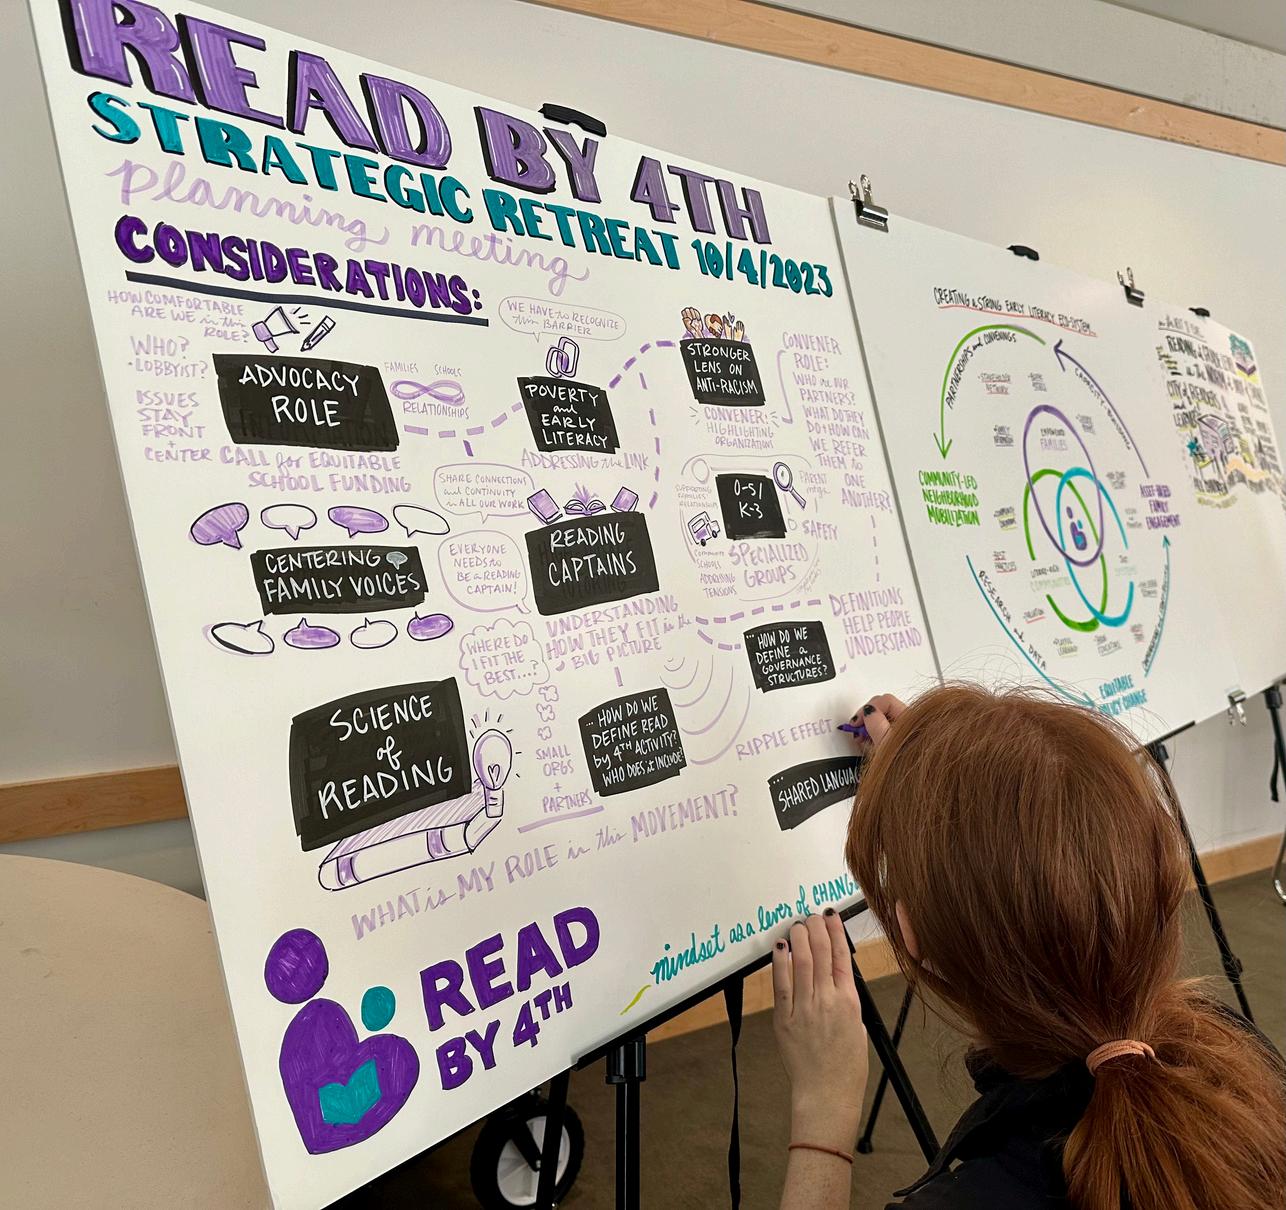 READ BY 4TH
STRATEGIC RETREAT 10/4/2023
planning meeting
CONSIDERATIONS:
HOW COMFORTABLE
ARE WE in this
ROLE?
WHO?
•LOBBYIST?
ISSUES
STAY
FRONT
+
CENTER
ADVOCACY
ROLE
CALL for EQUITABLE
SCHOOL FUNDING
FAMILIES SCHOOLS
RELATIONSHIPS
WE HAVE to RECOGNIZE
this BARRIER
POVERTY
and
EARLY
LITERACY
ADDRESSING the LINK
STRONGER
LENS ON
ANTI-RACISM
CONVENER:
HIGHLIGHTING
ORGANIZATIONS
CONVENER
ROLE:
WHO are OUR
PARTNERS?
WHAT DO THEY
DO + HOW CAN
WE REFER
THEM to
ONE
ANOTHER?
CENTERING
FAMILY VOICES
SHARE CONNECTIONS
and CONTINUITY
in ALL OUR WORK
EVERYONE
NEEDS to
BE a READING
CAPTAIN!
READING
CAPTAINS
UNDERSTANDING
HOW THEY FIT in the
BIG PICTURE
SUPPORTING
FAMILIES'
RELATIONSHIPS
0-5/
K-3
PARENT
SAFETY
COMMUNITY
SCHOOLS
ADDRESSING
TENSIONS
SPECIALIZED
GROUPS
DEFINITIONS
HELP PEOPLE
UNDERSTAND
...HOW DO WE
DEFINE a
GOVERNANCE
STRUCTURES?
WHERE DO
I FIT THE
BEST...?
SMALL
ORGS
+
PARTNERS
...HOW DO WE
DEFINE READ
by 4TH ACTIVITY?
WHO DOES it INCLUDE?
RIPPLE EFFECT
...
SHARED LANGUA
SCIENCE
of
READING
WHAT is MY ROLE in this MOVEMENT?
mindset as a lever of CHANG
READ
BY 4TH
CREATING a STRONG EARLY LITERACY ECO-SYSTEM
PARTNERSHIPS and CONVENINGS
CAPACITY-BUILDING
EMPOWERED
FAMILIES
COMMUNITY-LED
NEIGHBORHOOD
MOBILIZATION
ASSET-BASED
FAMILY
ENGAGEMENT
LITERACY-RICH
COMMUNITIES
RESEARCH and DATA
EQUITABLE
POLICY CHANGE